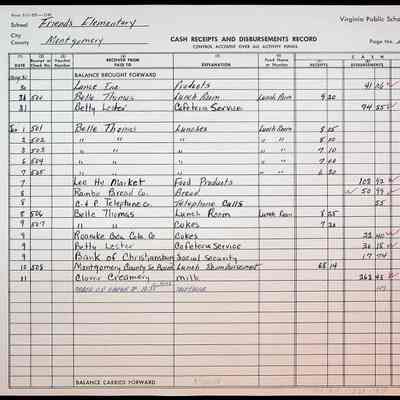 School Friends Elementary
City
County Montgomery
Virginia Public Scho
CASH RECEIPTS AND DISBURSEMENTS RECORD
CONTROL ACCOUNT OVER ALL ACTIVITY FUNDS
Page No.
CASH
DATE Receipt or Check No. Voucher Number RECEIVED FROM PAID TO EXPLANATION Fund Name or Number RECEIPTS DISBURSEMENTS
BALANCE BROUGHT FORWARD
30 Lance Inc Products 41 06
31 500 Belle Thomas Lunch Room Lunch Room 9 20
31 Betty Lester Cafeteria Service 74 25
1 501 Belle Thomas Lunches Lunch Room 8 25
2 502 " " " " " 8 10
3 503 " " " " " 7 10
6 504 " " " " " 7 60
7 505 " " " " " 6 30
7 Lee Hy Market Food Products 108 92
8 Rainbo Bread Co. Bread 50 99
8 C. & P. Telephone Co. Telephone Calls 55
8 506 Belle Thomas Lunch Room Lunch Room 8 25
9 507 " " Cokes 7 20
9 Roanoke Coca Cola Co Cokes 22 40
9 Patty Lester Cafeteria Service 36 18
9 Bank of Christiansburg Social Security 17 74
10 508 Montgomery County Sc. Board Lunch Reimbursement 65 14
11 Clover Creamery Milk 262 45
BALANCE CARRIED FORWARD